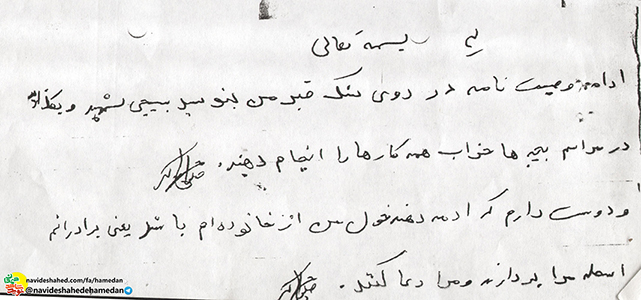 بسمه تعالی
ادامه وصیت نامه در روی سنگ قبر من بنویسید بسیجی شهید و بگذارید
در مراسم بچه ها خواب همه کارها را انجام دهند.
و دوست دارم که ادمه دهنده من از خانوده ام باشد یعنی برادرانم
اسلحه مرا بردارند و مرا دعا کنند.
navideshahed.com/fa/hamedan
@navideshahedehamedan